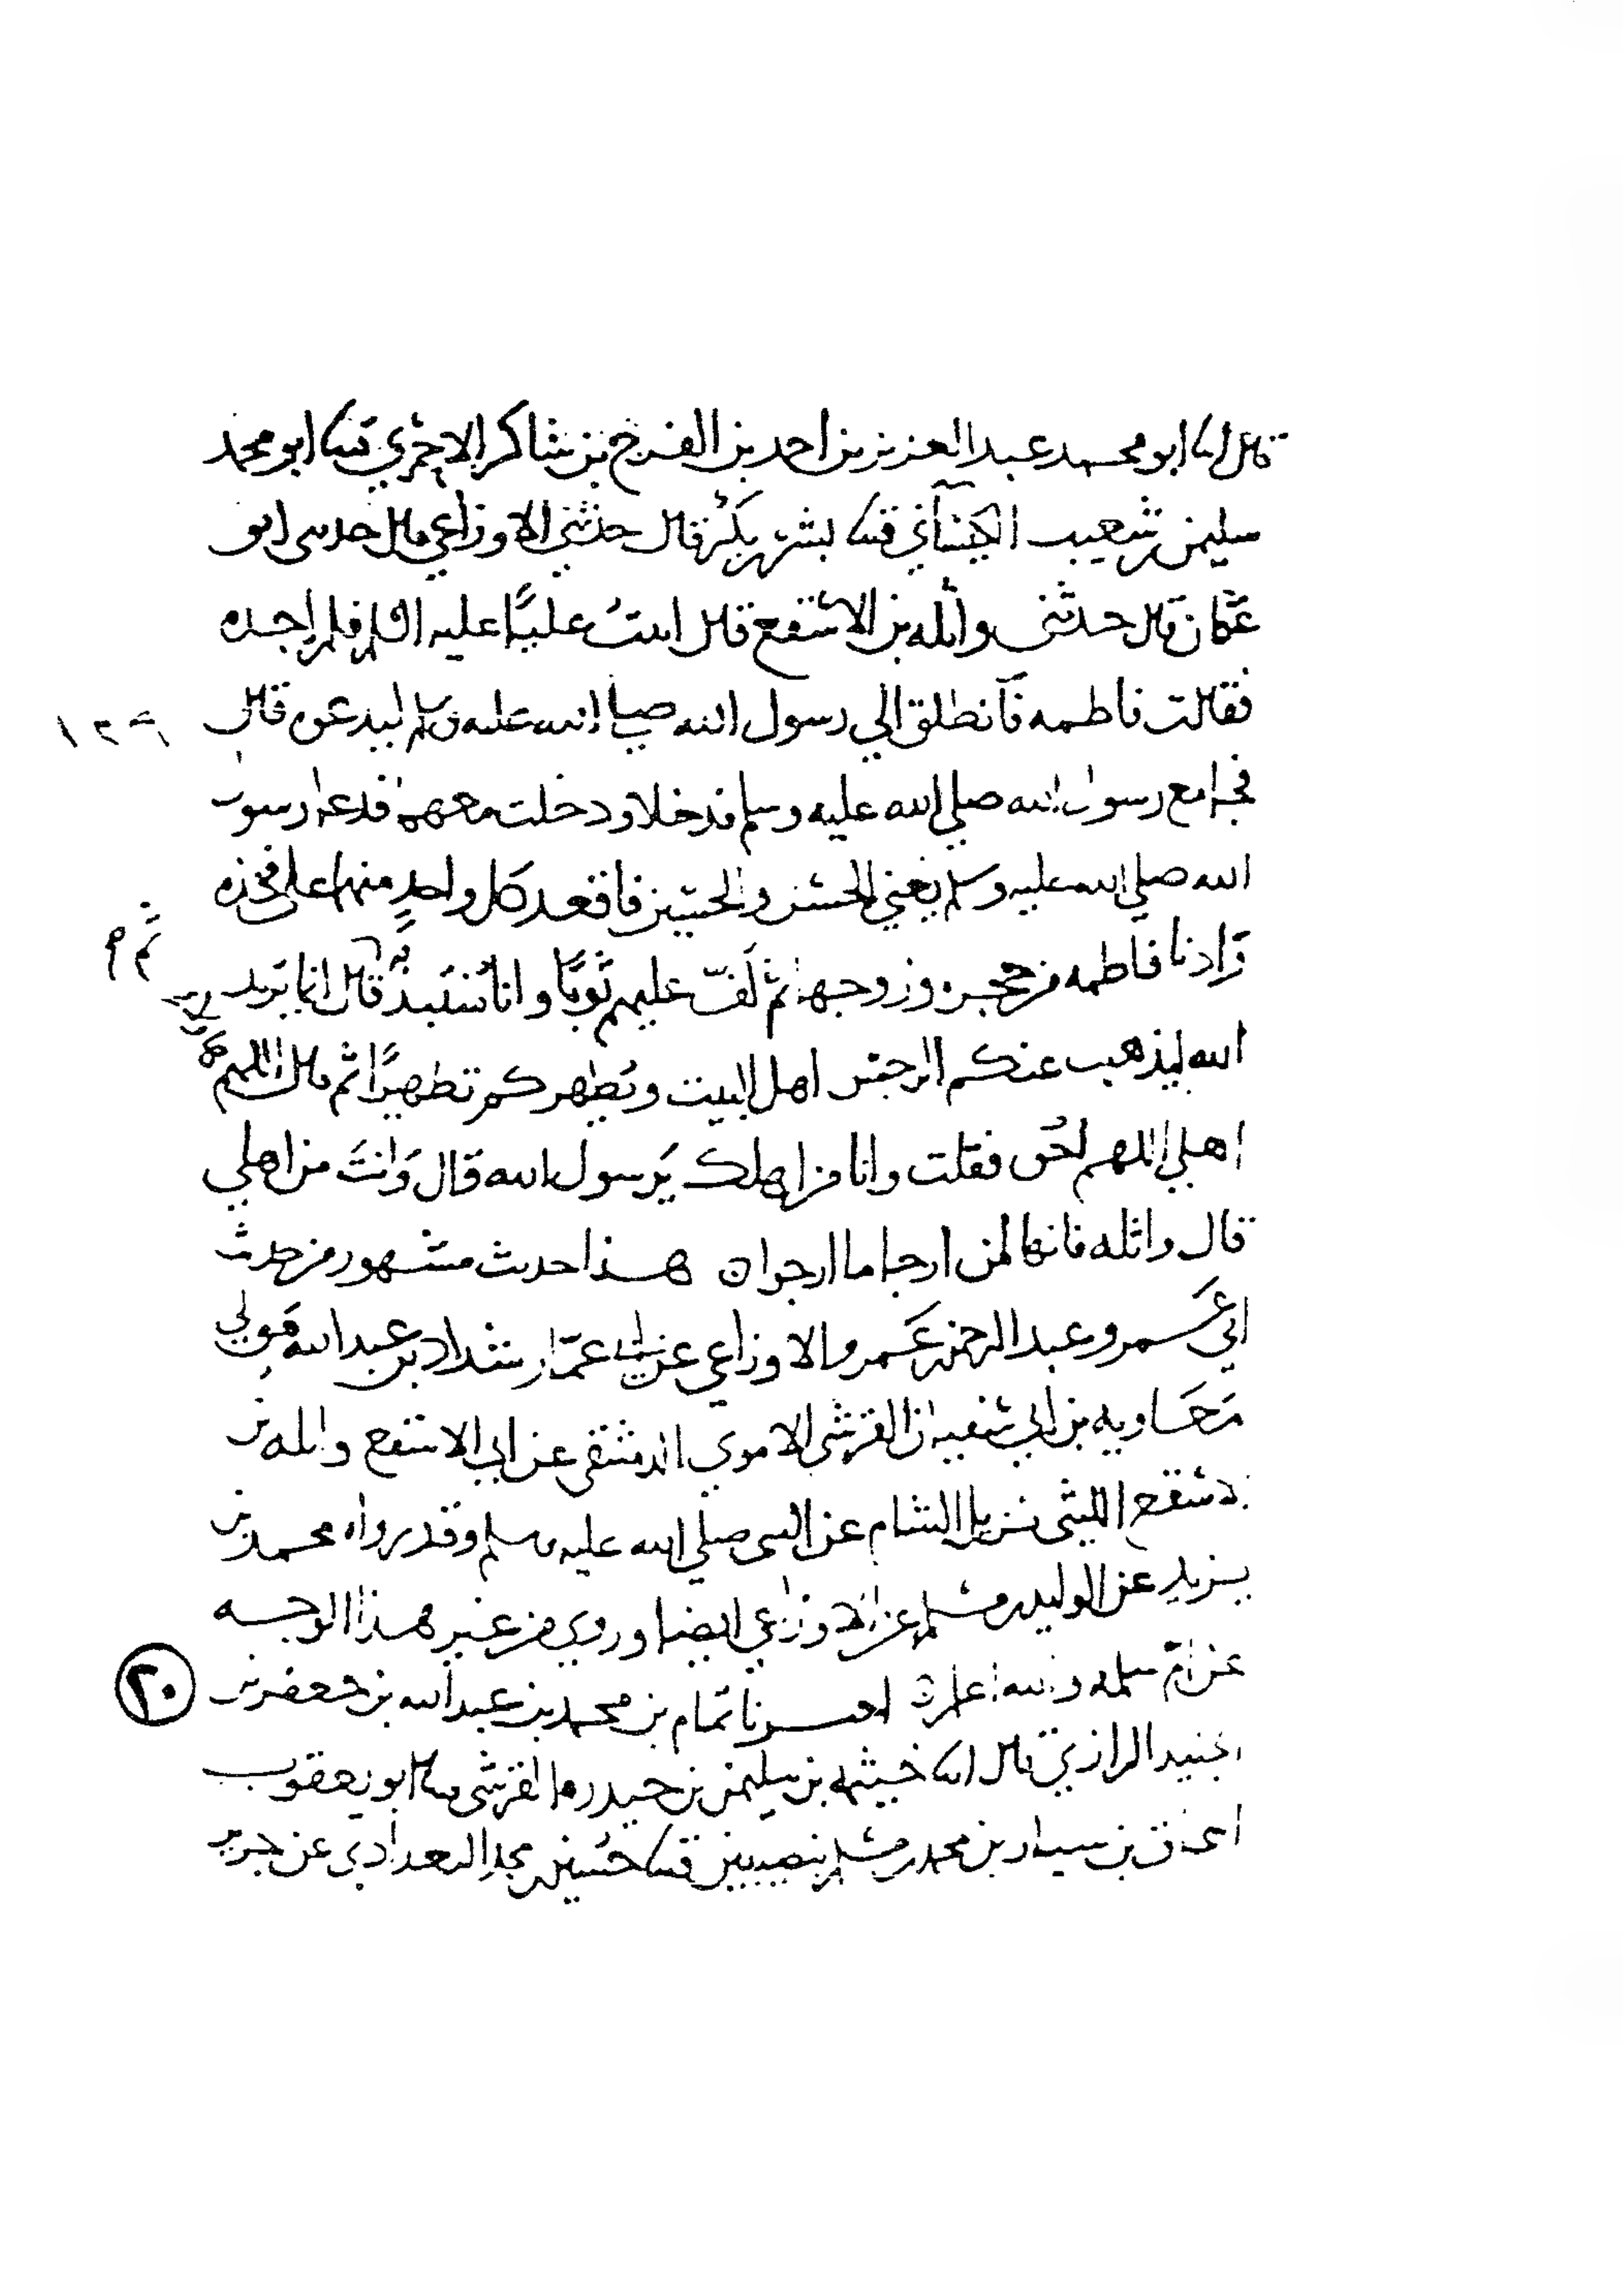 قال انا ابو محمد عبد العزيز بن احمد بن الفرج بن شاكر الاحمري قثنا ابو محمد
سليمن بن شعيب الكيساني قثنا بشر بن بكر قال حدثني الاوزاعي قال حدثني ابو
عمار قال حدثني واثله بن الاسقع قال اتيت عليًا عليه السلم فلم اجده
فقالت فاطمه انطلق الي رسول الله صلى الله عليه وسلم ليدعوه قال
فجا مع رسول الله صلي الله عليه وسلم فدخلا ودخلت معهما فدعا رسول
الله صلي الله عليه وسلم يعني الحسن والحسين فاقعد كل واحدٍ منهما على فخذه
وادنا فاطمه من حجره وزوجها ثم لف عليهم ثوبًا وانا منتبذ قال انما يريد
ثم
الله ليذهب عنكم الرجس اهل البيت ويطهركم تطهيرًا ثم قال اللهم هولا
اهلي اللهم احق فقلت وانا من اهلك يرسول الله قال وَانتَ من اهلي
قال واثله فانها لمن ارجا ما ارجوا ه هذا حديث مشهور من حديث
ابي عمرو عبد الرحمن بن عمرو الاوزاعي عن ابي عمّار شداد بن عبد الله مولي
معاويه بن ابي سفيان القرشي الاموي الدمشقي عن ابي الاسقع واثله بن
الاسقع الليثي نزيل الشام عن النبي صلي الله عليه وسلم وقد رواه محمد بن
يزيد عن الوليد بن مسلم عن الاوزاعي ايضا وروي من غير هذا الوجه
عن امّ سلمه والله اعلم ه اخبرنا تمام بن محمد بن عبد الله بن جعفر بن
٢٠
الجنيد الرازي قال انا خيثمه بن سليمن بن حيدره القرشي قثنا ابو يعقوب
اسحاق بن سيار بن محمد بن مسلم بنصيبين قثنا حسين بن محمد البغدادي عن جرير